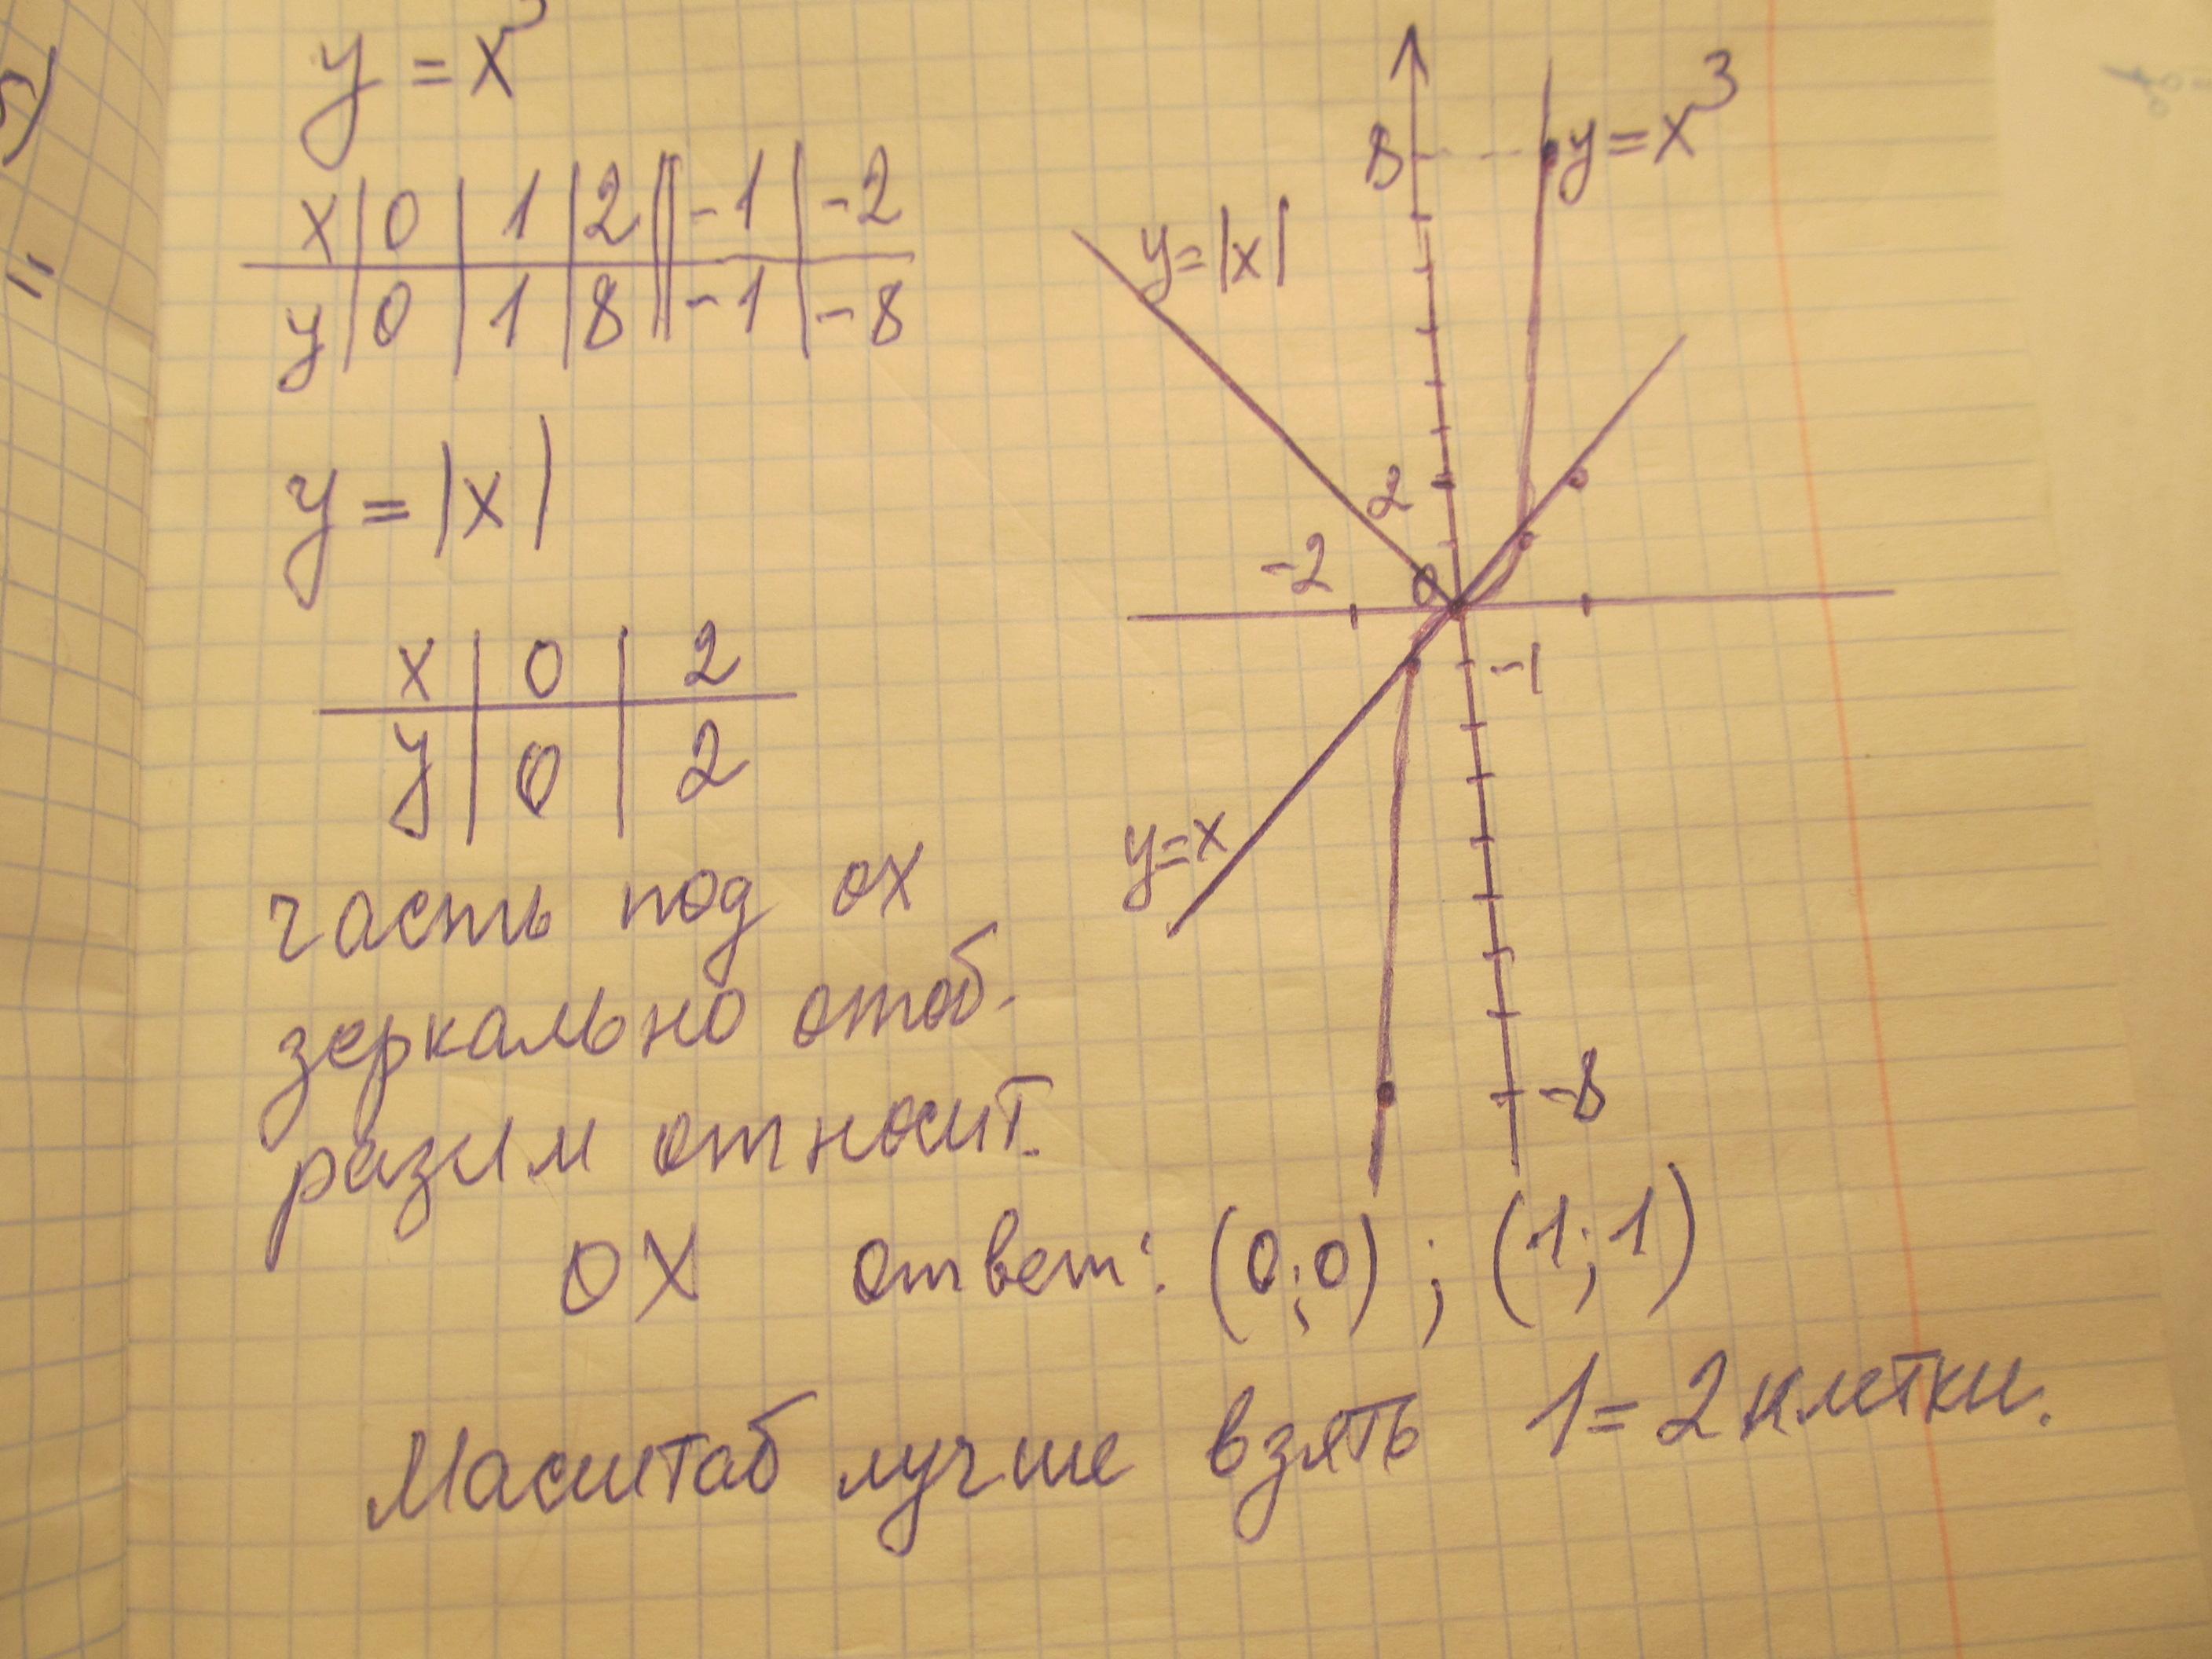 б)
y = x³
x | 0 | 1 | 2 || -1 | -2
y | 0 | 1 | 8 || -1 | -8
y = |x|
x | 0 | 2
y | 0 | 2
часть под ох
зеркально отоб-
разим относит.
ОХ ответ: (0;0) ; (1;1)
Масштаб лучше взять 1=2 клетки.
8
y=x³
y=|x|
2
-2
0
-1
y=x
-8